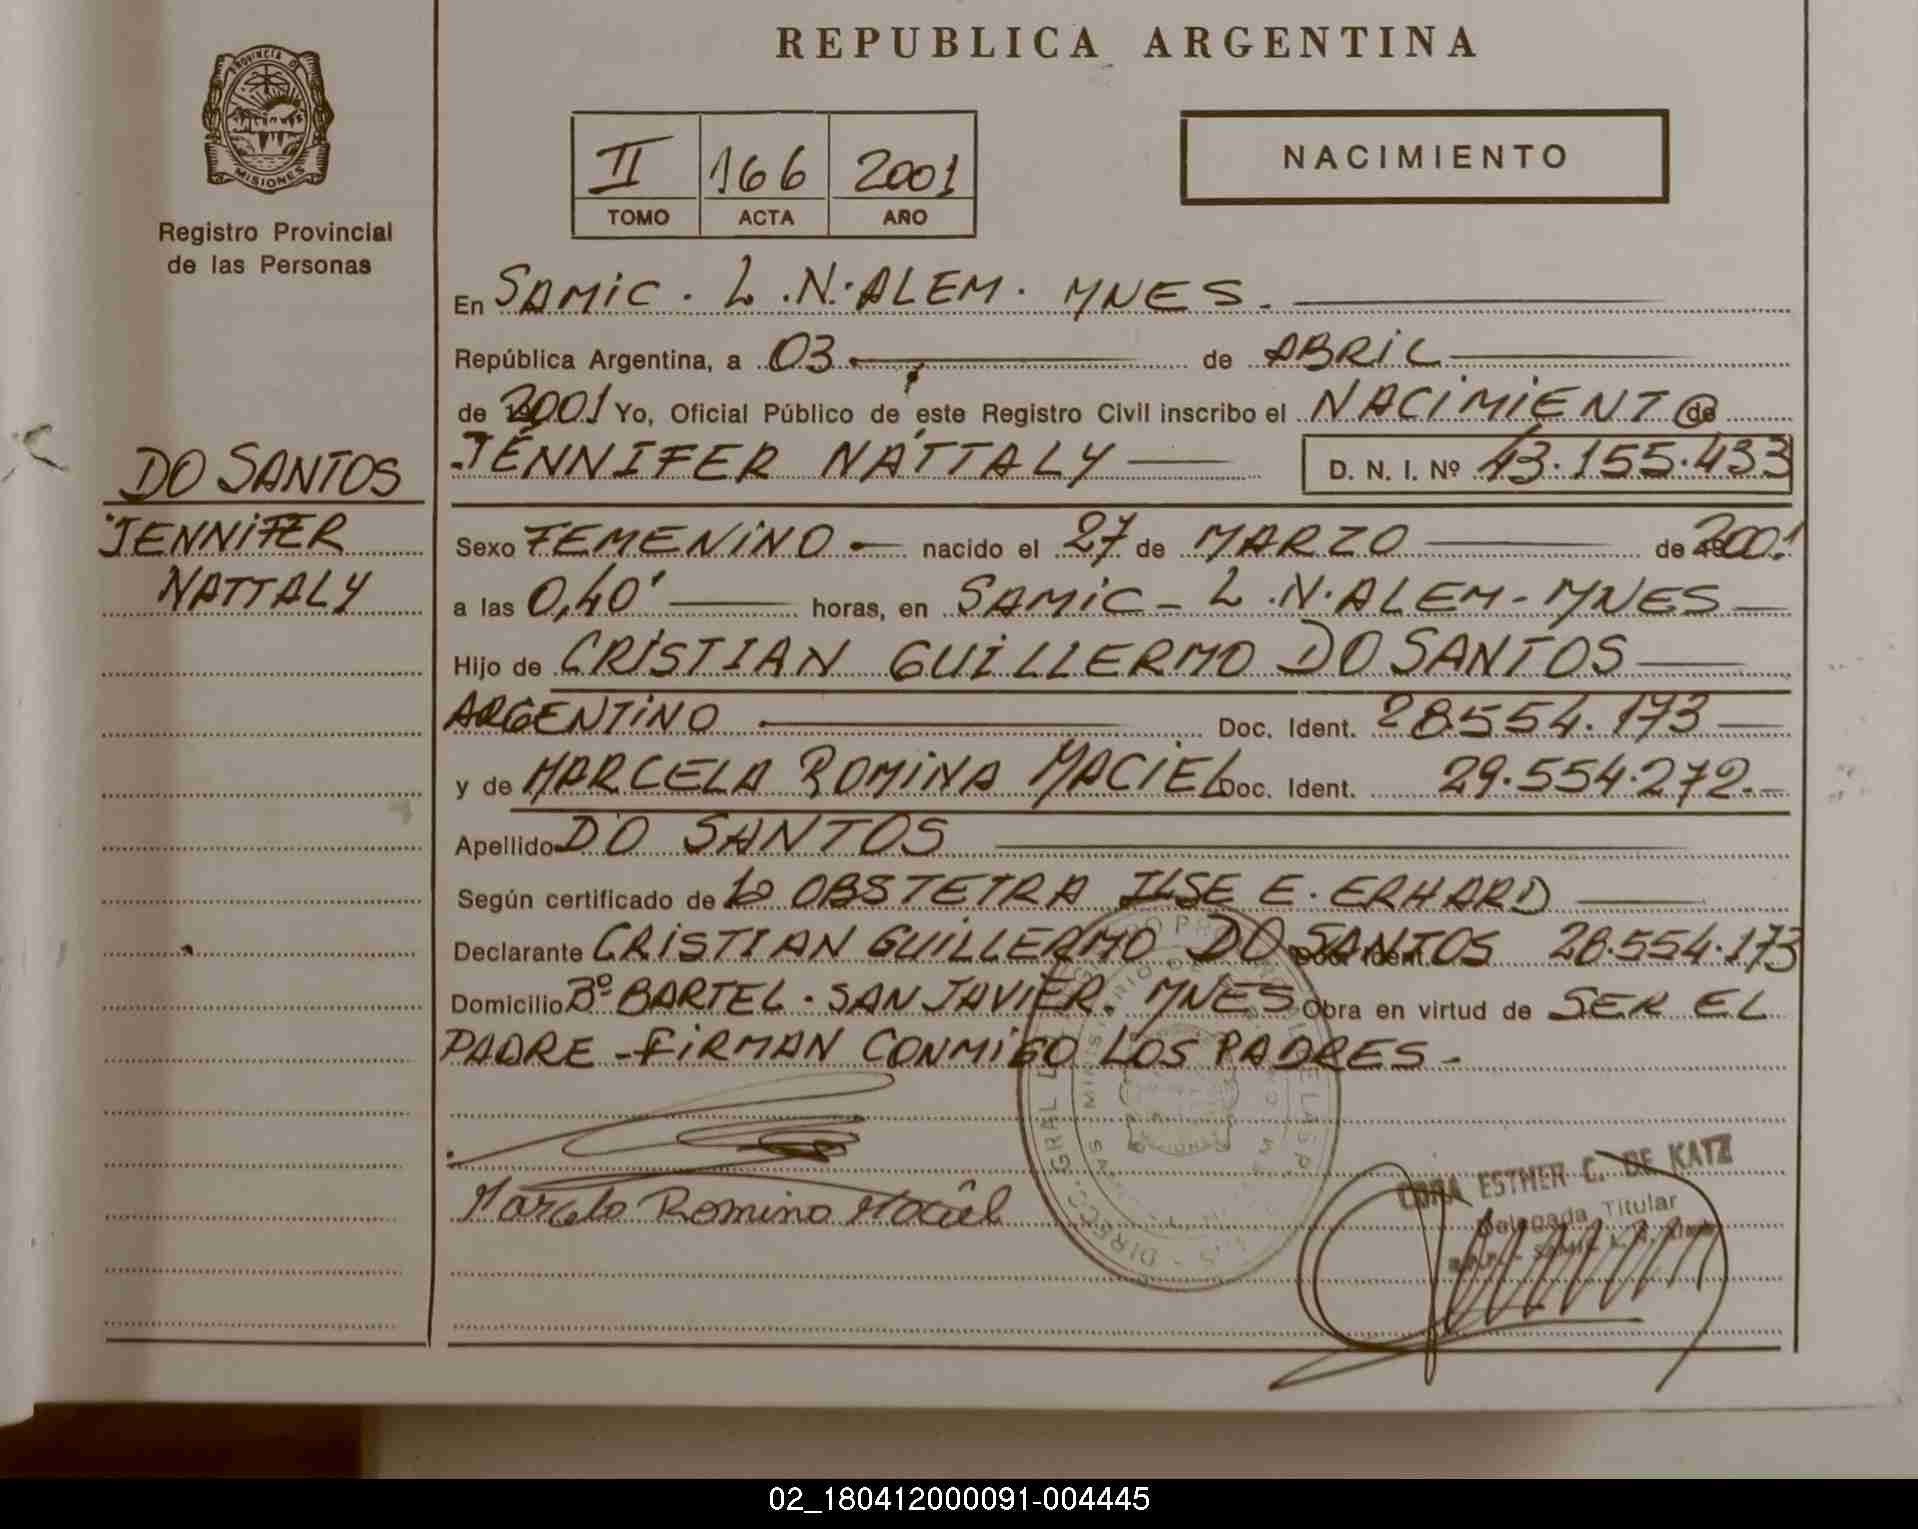 REPUBLICA ARGENTINA
PROVINCIA DE
MISIONES
Registro Provincial
de las Personas
NACIMIENTO
II 166 2001
TOMO ACTA AÑO
En SAMIC. L.N.ALEM. MNES.
República Argentina, a 03 de ABRIL
de 2001 Yo, Oficial Público de este Registro Civil inscribo el NACIMIENTO de
JENNIFER NATTALY D. N. I. Nº 43.155.433
DO SANTOS
JENNIFER
NATTALY
Sexo FEMENINO nacido el 27 de MARZO de 2001
a las 0,40' horas, en SAMIC - L.N.ALEM - MNES
Hijo de CRISTIAN GUILLERMO DO SANTOS
ARGENTINO Doc. Ident. 28.554.173
y de MARCELA ROMINA MACIEL Doc. Ident. 29.554.272.-
Apellido DO SANTOS
Según certificado de la OBSTETRA ILSE E. ERHARD
Declarante CRISTIAN GUILLERMO DO SANTOS Doc. Ident. 28.554.173
Domicilio Bº BARTEL. SAN JAVIER. MNES Obra en virtud de SER EL
PADRE - FIRMAN CONMIGO LOS PADRES -
Marcela Romina Maciel
CORA ESTHER C. DE KATZ
Delegada Titular
02_180412000091-004445